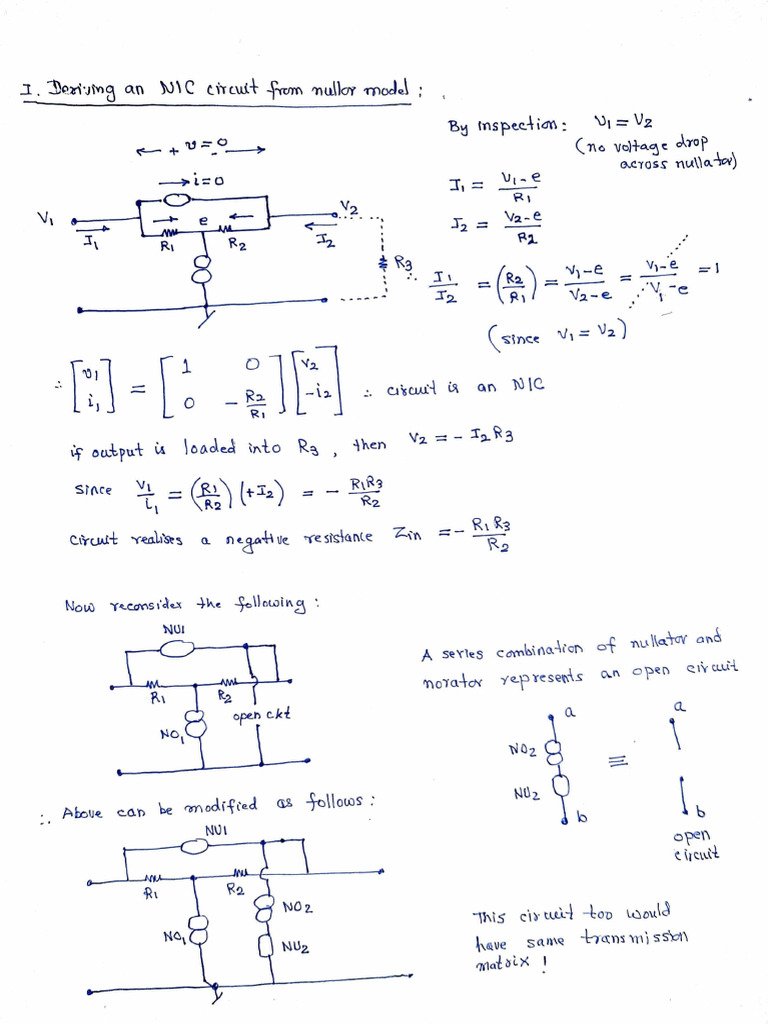 I. Deriving an NIC circuit from nullor model :
← + v = 0 - →
→ i = 0
V1
I1
R1
e
R2
V2
I2
R3
By inspection: V1 = V2
(no voltage drop
across nullator)
I1 = (V1-e)/R1
I2 = (V2-e)/R2
∴ I1/I2 = (R2/R1) = (V1-e)/(V2-e) = (V1-e)/(V1-e) = 1
(since V1 = V2)
∴ [v1 i1] = [1 0 0 -R2/R1] [v2 -i2] ∴ circuit is an NIC
if output is loaded into R3, then V2 = - I2 R3
since V1/i1 = (R1/R2) (+I2) = - R1R3/R2
circuit realises a negative resistance Zin = - R1 R3/R2
Now reconsider the following :
NU1
R1
R2
NO1
open ckt
A series combination of nullator and
norator represents an open circuit
a
NO2
NU2
b
≡
a
b
open
circuit
∴ Above can be modified as follows :
NU1
R1
R2
NO1
NO2
NU2
This circuit too would
have same transmission
matrix !